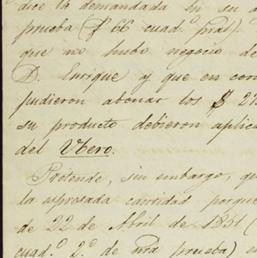 dice la demandada en su a
prueba (f 66 cuad.º pral)
que no hubo negocio de
D. Enrique y que en con
pudieron abonar los $ 27
su producto debieron aplica
del Vtero.
Pretende, sin embargo, qu
la espresada cantidad porque
de 22 de Abril de 1851 (
cuad.º 2.º de mra prueba) e